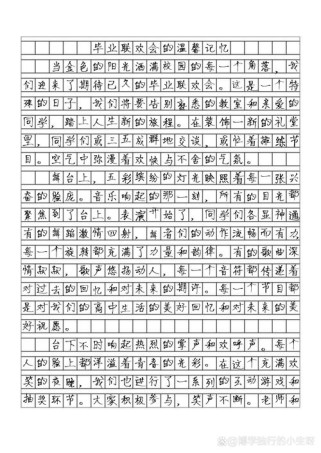 毕业联欢会的温馨记忆
当金色的阳光洒满校园的每一个角落，我
们迎来了期待已久的毕业联欢会。这是一个特
殊的日子，我们将要告别熟悉的教室和亲爱的
同学，踏上人生新的旅程。在装饰一新的礼堂
里，同学们或三五成群地交谈，或忙着排练节
目。空气中弥漫着欢快与不舍的气氛。
舞台上，五彩缤纷的灯光映照着每一张兴
奋的脸庞。音乐响起的那一刻，所有的目光都
聚焦到了台上。表演开始了，同学们各显神通
有的舞蹈激情四射，舞者们的动作流畅而有力
每一个旋转都充满了力量和韵律。有的歌曲深
情款款，歌声悠扬动人，每一个音符都传递着
对过去的回忆和对未来的期许。每一个节目都
是对我们的高中生活的美好回忆和对未来的美
好祝愿。
台下不时响起热烈的掌声和欢呼声。每个
人的脸上都洋溢着青春的光彩。在这个充满欢
笑的夜晚，我们也进行了一系列的互动游戏和
抽奖环节。大家积极参与，笑声不断。老师和